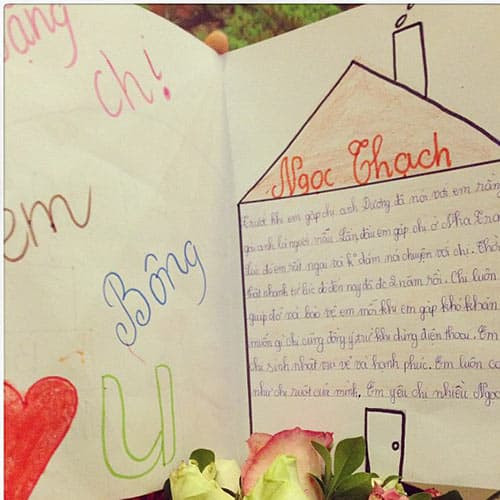 ặng
chị!
em
Bông
U
Ngọc Thạch
Trước khi em gặp chị anh Dương đã nói với em rằn
gu anh là người mẫu. Lần đầu em gặp chị ở Nha Tra
lúc đó em rất ngại và k' dám nói chuyện với chị. Thờ
thật nhanh từ lúc đó đến nay đã đc 2 năm rồi. Chị luôn
giúp đỡ và bảo vệ em mỗi khi em gặp khó khăn
muốn gì chị cũng đồng ý trừ khi dùng điện thoại. Em
chị sinh nhật vui vẻ và hạnh phúc. Em luôn co
như chị ruột của mình. Em yêu chị nhiều. Ngọc